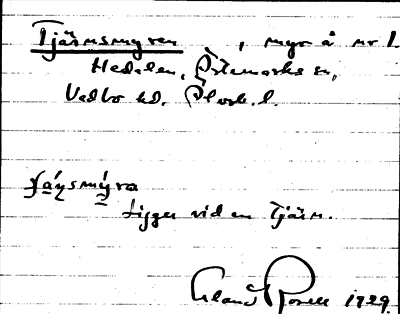 Tjärnsmyren, myr å nr 1.
Hedalen, Östemarks sn,
Vedbo hd. Älvsb. l.
Ligger vid en Tjärn.
Erland Rosell 1929.